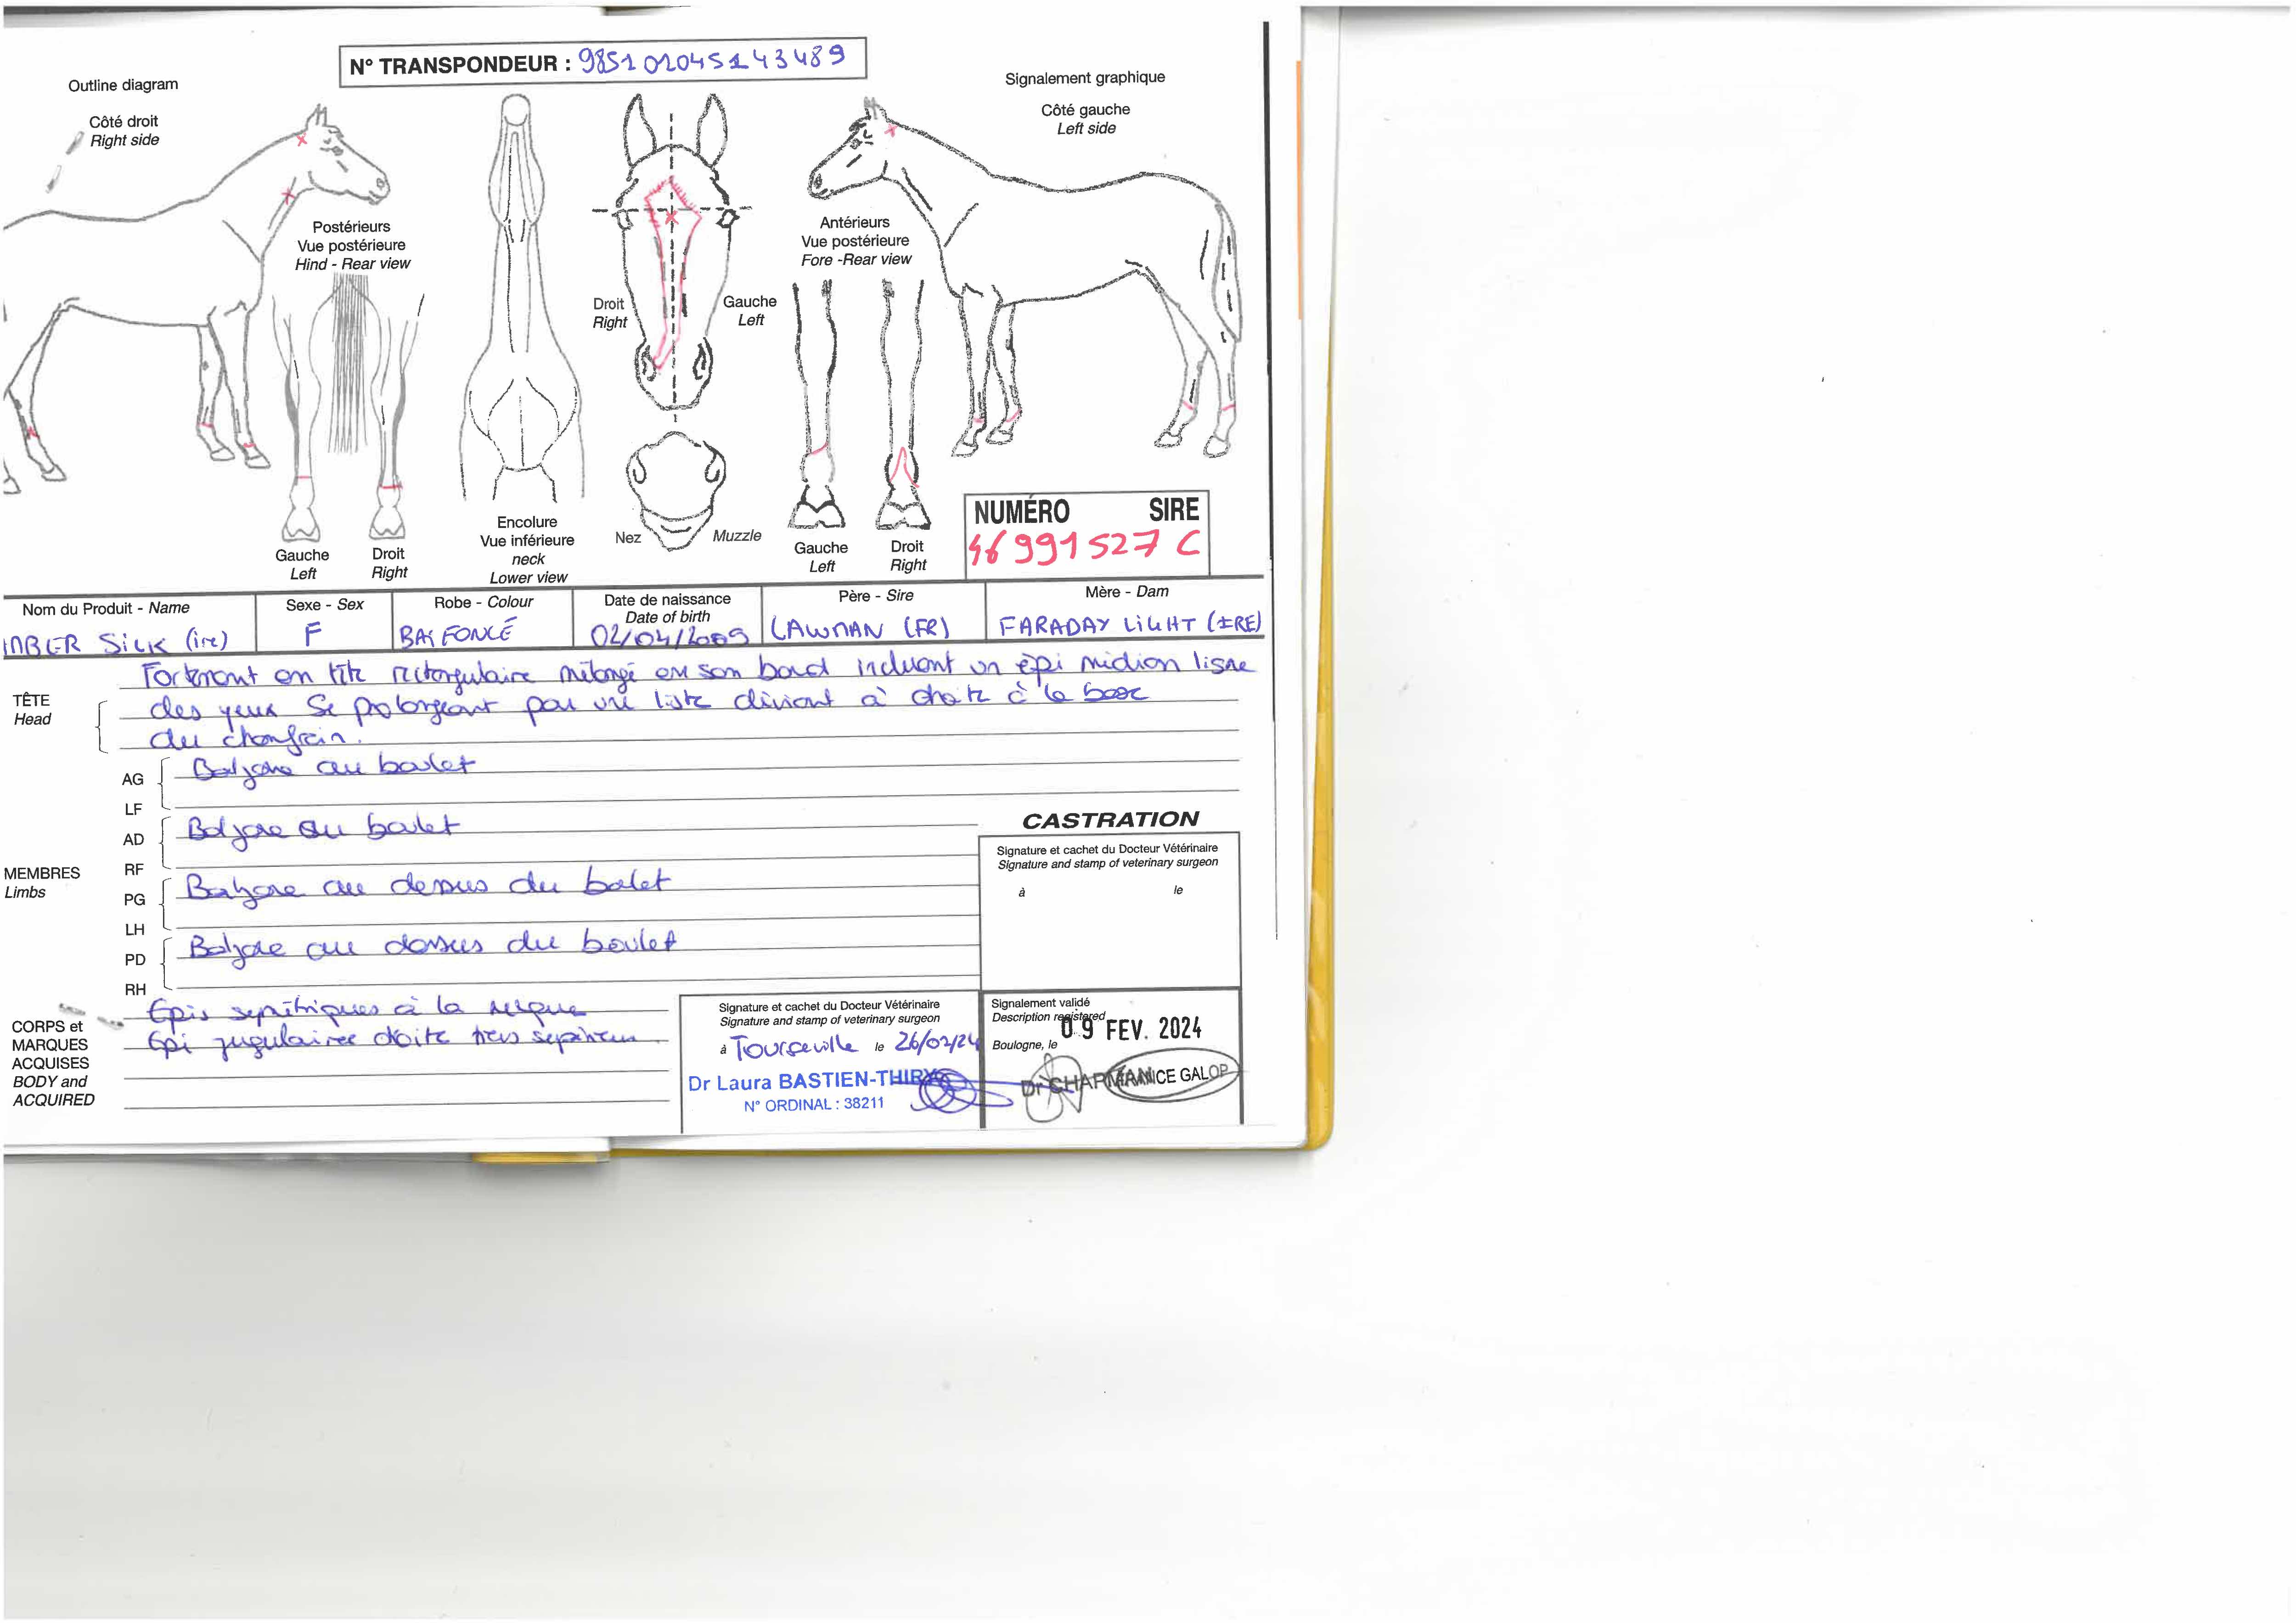 N° TRANSPONDEUR : 985101045143489
Outline diagram
Signalement graphique
Côté droit
Right side
Côté gauche
Left side
Postérieurs
Vue postérieure
Hind - Rear view
Antérieurs
Vue postérieure
Fore -Rear view
Droit
Right
Gauche
Left
Encolure
Vue inférieure
neck
Lower view
Nez
Muzzle
Gauche
Left
Droit
Right
Gauche
Left
Droit
Right
NUMÉRO SIRE
46 991 527 C
Nom du Produit - Name
Sexe - Sex
Robe - Colour
Date de naissance
Date of birth
Père - Sire
Mère - Dam
SILK (ire)
F
BAI FONCÉ
02/04/2009
LAWMAN (FR)
FARADAY LIGHT (IRE)
TÊTE
Head
Fortement en tête rectangulaire mélangé en son bord incluant un épi médian ligne
des yeux se prolongeant par une liste déviant à droite à la base
du chanfrein.
AG
LF
Balzane au boulet
AD
RF
Balzane au boulet
MEMBRES
Limbs
PG
LH
Balzane au dessus du boulet
PD
RH
Balzane au dessus du boulet
CORPS et
MARQUES
ACQUISES
BODY and
ACQUIRED
Epis symétriques à la nuque
Epi jugulaire droite très supérieur
CASTRATION
Signature et cachet du Docteur Vétérinaire
Signature and stamp of veterinary surgeon
à le
Signature et cachet du Docteur Vétérinaire
Signature and stamp of veterinary surgeon
à Tourgeville le 26/01/24
Dr Laura BASTIEN-THIRY
N° ORDINAL : 38211
Signalement validé
Description registered
Boulogne, le 09 FEV. 2024
Dr CHARMAN
FRANCE GALOP